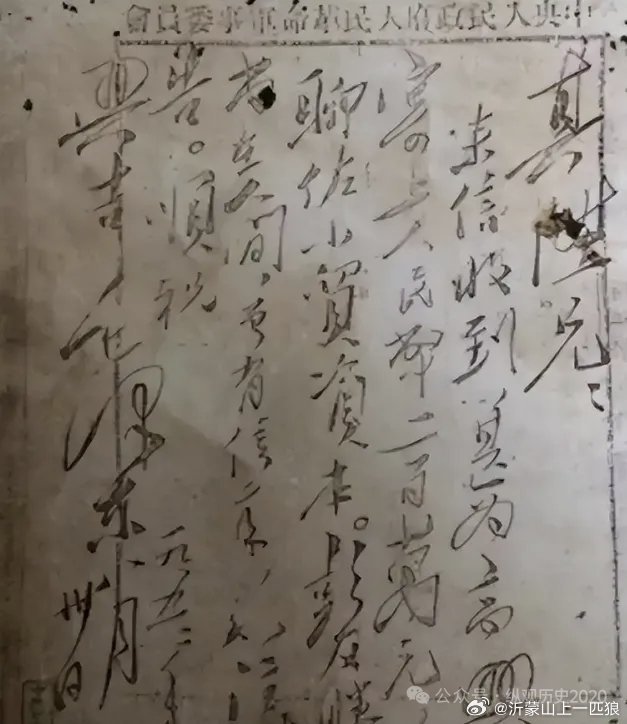 中央人民政府人民革命軍事委員會
兄：
来信收到甚为高興
寄上人民幣二百萬元
聊佐小貿資本。
若在人間，有信
告。順祝
吉 毛澤東
一九五二年
月卅日
公众号·纵观历史2020
@沂蒙山上一匹狼